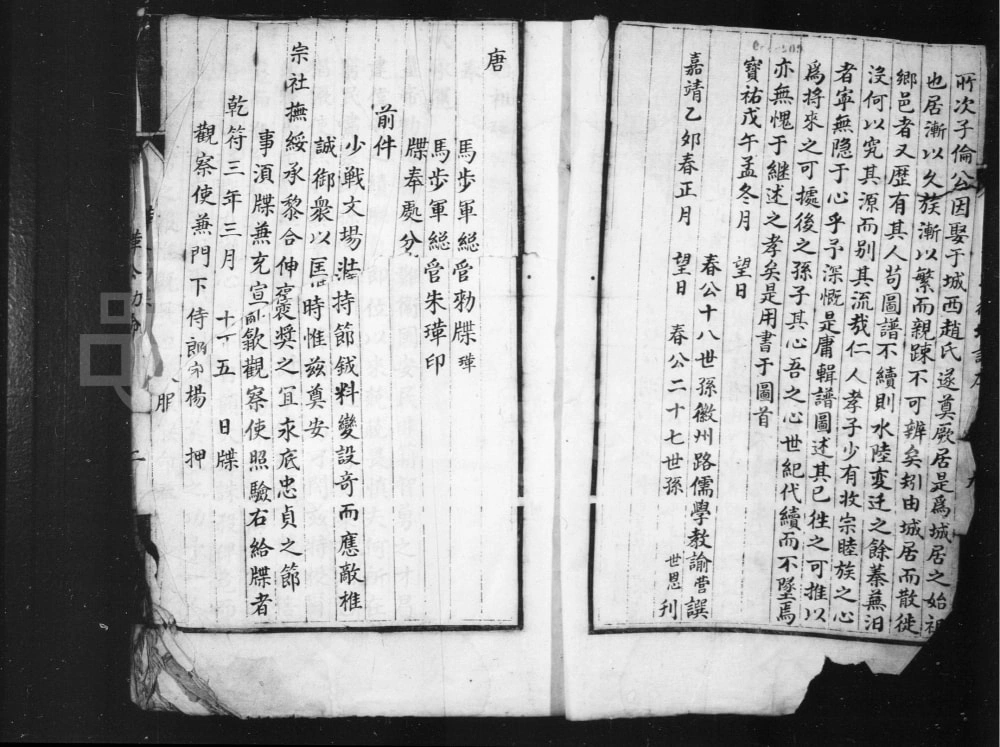 所次子倫公因娶于城西趙氏遂奠厥居是爲城居之始祖
也居漸以久族漸以繁而親踈不可辨矣矧由城居而散徙
鄉邑者又歷有其人苟圖譜不續則水陸变迁之餘蓁蕪汩
沒何以究其源而别其流哉仁人孝子少有收宗睦族之心
者寜無隐于心乎予深慨是庸輯譜圖述其已徃之可推以
爲將來之可據後之孫子其心吾之心世紀代續而不墜焉
亦無愧于継述之孝矣是用書于圖首
寳祐戊午孟冬月 望日
春公十八世孫徽州路儒學教諭營譔
嘉靖乙夘春正月 望日 春公二十七世孫 世恩刋
唐
馬步軍総管勑牒 璍
馬步軍総管朱璍印
牒奉處分
前件
少戦文場 持節鉞料變設奇而應敵惟
誠御衆以匡 時惟兹奠安
宗社撫綏承黎合伸褒奬之冝永底忠貞之節
事湏牒兼充宣 歙觀察使照驗右給牒者
乾符三年三月 十五日牒
觀察使兼門下侍郎 楊 押